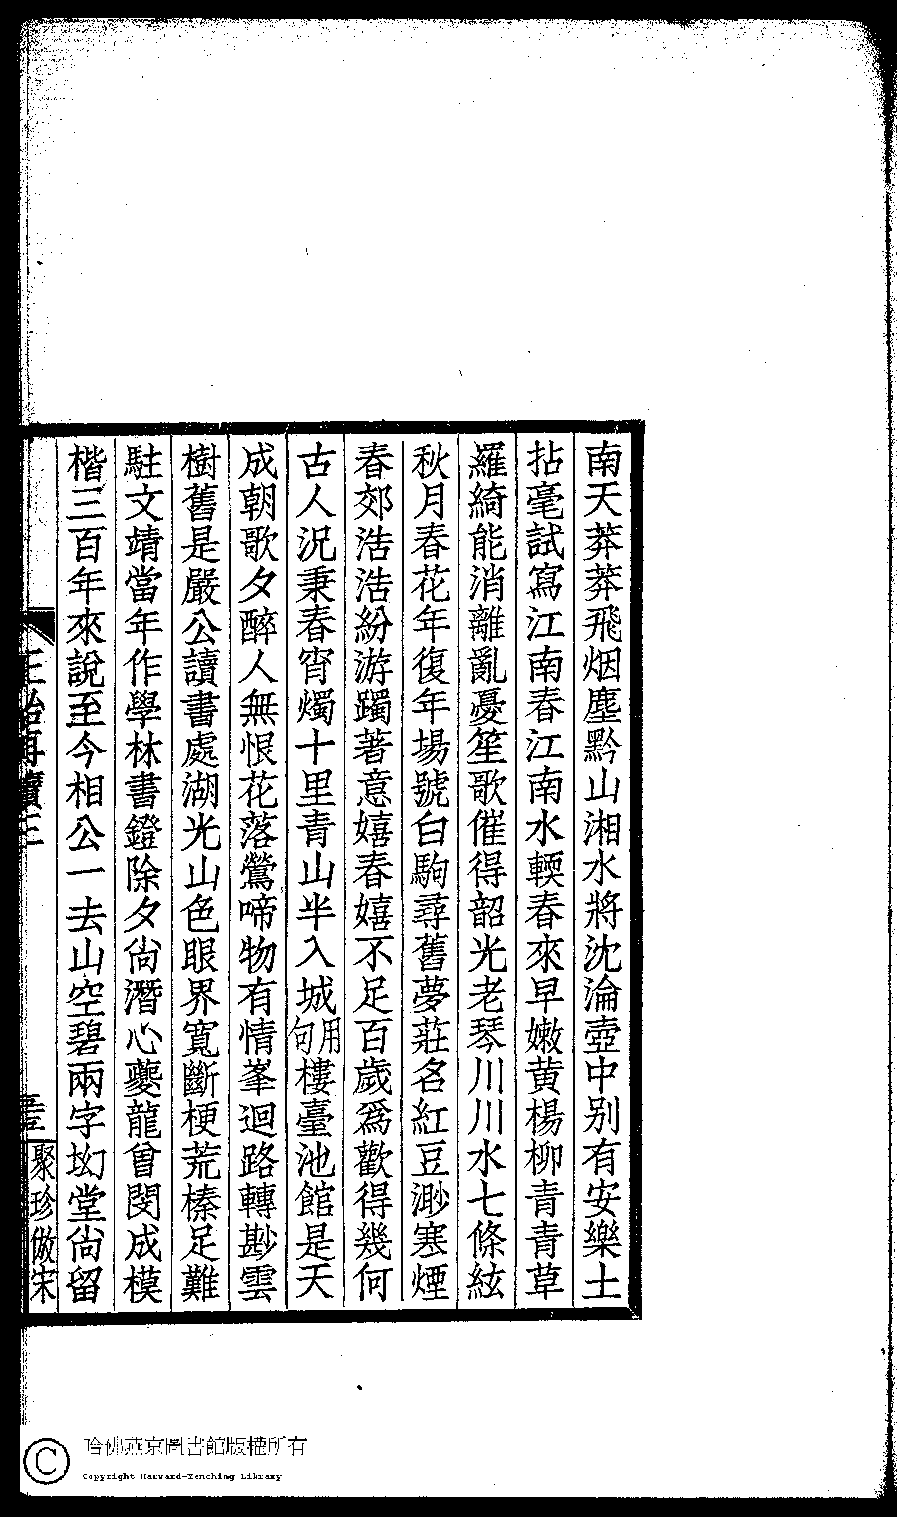 南天莽莽飛烟塵黔山湘水將沈淪壺中别有安樂土
拈毫試寫江南春江南水輭春來早嫩黄楊柳青青草
羅綺能消離亂憂笙歌催得韶光老琴川川水七條絃
秋月春花年復年場號白駒尋舊夢莊名紅豆渺寒煙
春郊浩浩紛游躅著意嬉春嬉不足百歲爲歡得幾何
古人況秉春宵燭十里青山半入城用句樓臺池館是天
成朝歌夕醉人無恨花落鶯啼物有情峯迴路轉尠雲
樹舊是嚴公讀書處湖光山色眼界寬斷梗荒榛足難
駐文靖當年作學林書鐙除夕尙潛心夔龍曾閔成模
楷三百年來說至今相公一去山空碧兩字㘭堂尙留
聚珍倣宋
哈佛燕京圖書館版權所有
Copyright Harvard-Yenching Library